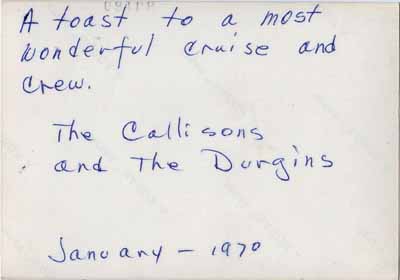 A toast to a most
wonderful cruise and
crew.
The Callisons
and The Durgins
January - 1970